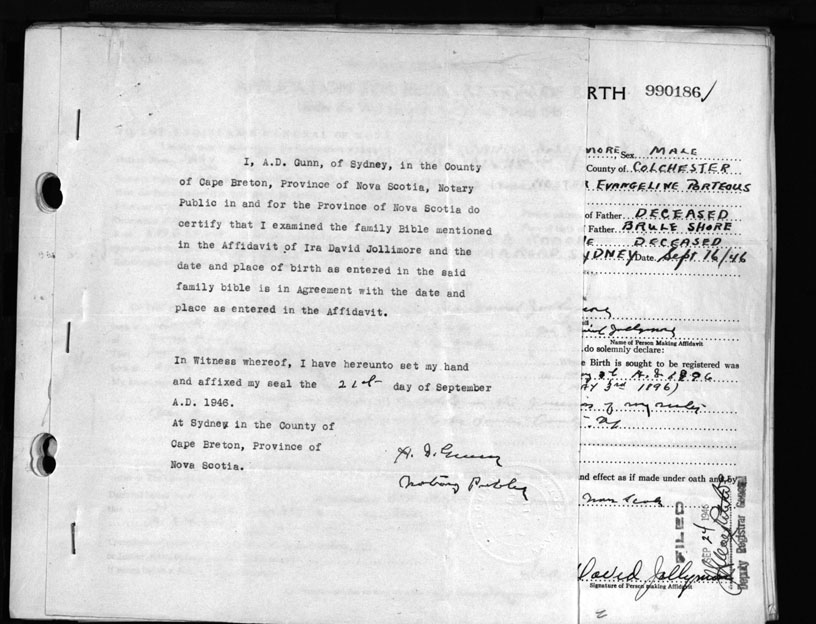 I, A.D. Gunn, of Sydney, in the County
of Cape Breton, Province of Nova Scotia, Notary
Public in and for the Province of Nova Scotia do
certify that I examined the family Bible mentioned
in the Affidavit of Ira David Jollimore and the
date and place of birth as entered in the said
family bible is in Agreement with the date and
place as entered in the Affidavit.
In Witness whereof, I have hereunto set my hand
and affixed my seal the 21st day of September
A.D. 1946.
At Sydney in the County of
Cape Breton, Province of
Nova Scotia.
A. D. Gunn
Notary Public
RTH 990186/
MORE, Sex MALE
County of COLCHESTER
EVANGELINE PORTEOUS
of Father DECEASED
Father BRULE SHORE
DECEASED
YDNEY Date Sept 16/46
Name of Person Making Affidavit
do solemnly declare:
e Birth is sought to be registered was
A.D. 1896
AY 3rd 1896)
nd effect as if made under oath and by
Nova Scotia
FILED
SEP 24 1946
Deputy Registrar General
David Jollymore
Signature of Person making Affidavit